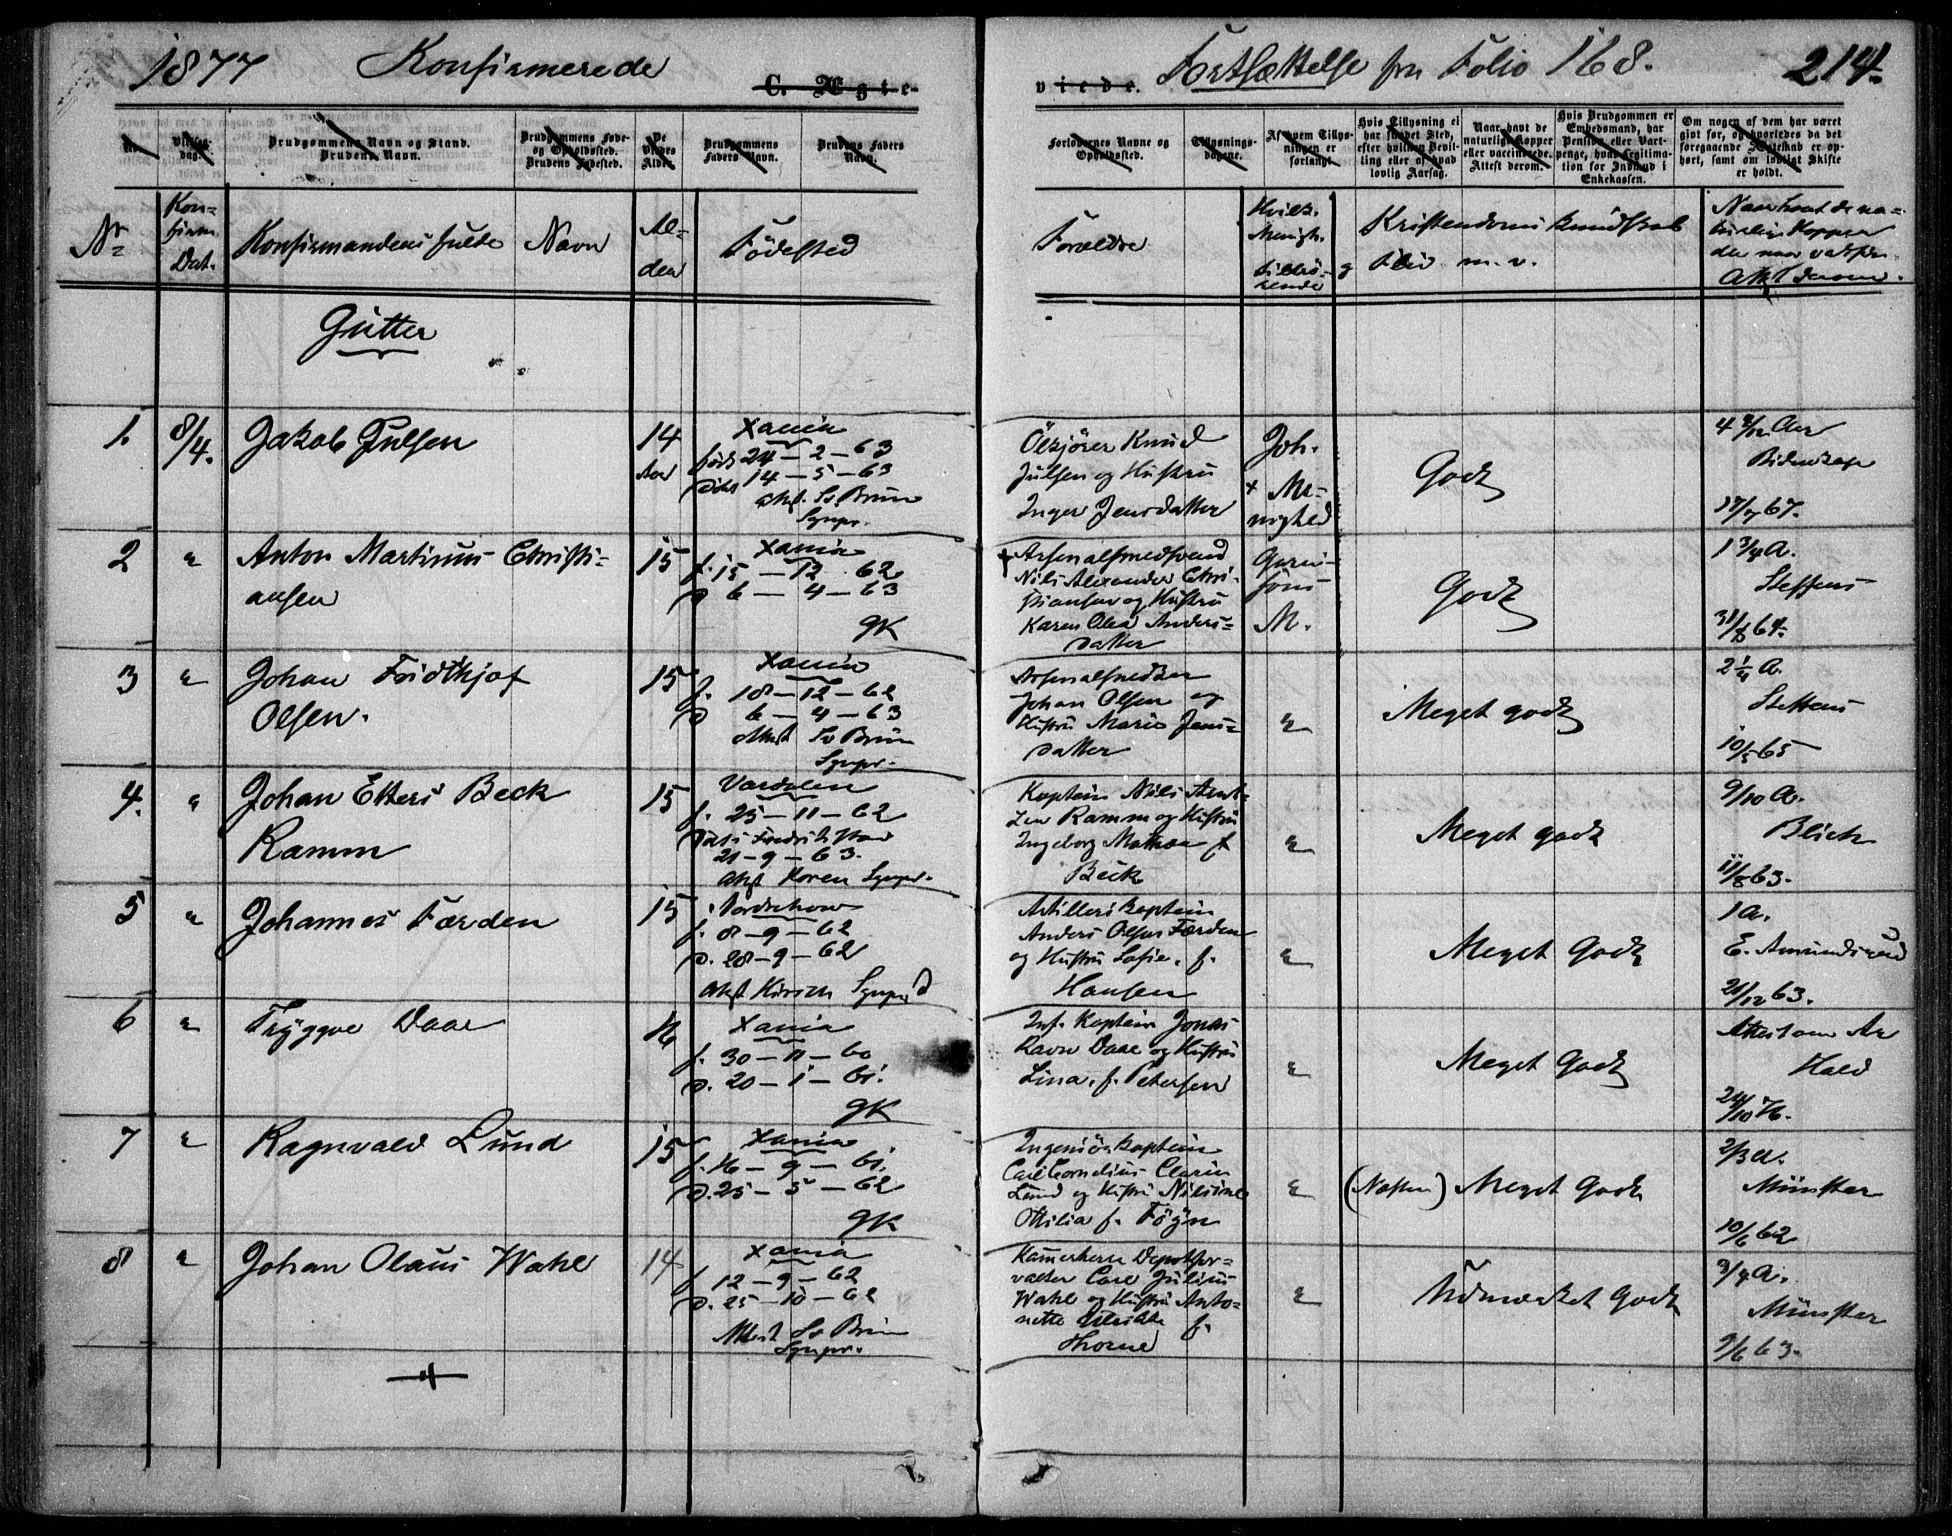 1877 Konfirmerede
C. Ægte-
viede.
Fortsættelse fra Folio 168.
214.
Brudgommens Navn og Stand.
Brudens Navn.
Brudgommens Føde-
og Opholdssted.
Brudens Fødested.
De
Viedes
Alder.
Brudgommens
Faders Navn.
Brudens Faders
Navn.
Forlovernes Navne og
Opholdssted.
Tillysnings-
dagene.
Af hvem Tillys-
ningen er
forlangt.
Hvis Tillysning ei
har fundet Sted,
efter hvilken Bevil-
ling eller af hvad
lovlig Aarsag.
Naar havt de
naturlige Kopper
eller vaccinerede.
Attest derom.
Hvis Brudgommen er
Embedsmand, har
Pension eller Vart-
penge, hvad Legitima-
tion for Indskud i
Enkekassen.
Om nogen af dem har været
givt før, og hvorledes da det
foregaaende Ægteskab er op-
hørt, samt om lovligt Skifte
er holdt.
No
Kon-
firm.
Dat.
Konfirmandens fulde Navn
Al-
der
Fødested
Forældre
Hvilk.
Menigh.
tilhø-
rende
Kristendoms kundskab
og Flid m. v.
Naar havt de na-
turlige Kopper
eller naar vaksin.
Att. derom.
Gutter
1. 8/4. Jakob Julsen
14
Aar
Xania
født 24 – 2 – 63
Døbt 14 – 5 – 63
Att. Sv Brun
Sgnpr.
Knud
Julsen og Hustru
Inger Jensdatter
Joh.
Me-
nighed
Godt
4 Aar
17/7 67.
2 " Anton Martinus Christi-
ansen
15
Xania
f. 15 – 12 62
D 6 – 4 – 63
GK
Arsenalsmedsvend
Nils Alexander Chri-
stiansen og Hustru
Karen Olea Anders-
datter
Garni-
sons
M.
Godt
1 3/4 A.
Steffens
31/8 64.
3 " Johan Fridthjof
Olsen.
15
Xania
f. 18 – 12 – 62
D 6 – 4 – 63
Attest Sv Brun
Sgnpr.
Johan Olsen og
Hustru Marie Jens-
datter
"
Meget godt
2 1/4 A.
Steffens
10/5 65
4. " Johan Ehlers Beck
Ramm
15
Værdalen
f. 25 – 11 – 62
21 – 9 – 63.
Att Koren Sgnpr.
Kaptein Nils
Ramm og Hustru
Ingeborg Mathea f
Beck
"
Meget godt
9/10 A.
Blich
11/8 63.
5 " Johannes Færden
15
Norderhov
f. 8 – 9 – 62
D. 28 – 9 – 62
Att Hirsch Sgnpr
Artillerikaptein
Anders Olsen Færden
og Hustru Sofie, f.
Hansen
"
Meget Godt
1 A.
E. Amundsen
21/12 63.
6 " Tryggve Daae
16
Xania
f. 30 – 11 – 60
D. 20 – 1 – 61.
GK
Inf. Kaptein Jonas
Ravn Daae og Hustru
Lina, f. Petersen
"
Meget Godt
Attest om Ar
Hald
24/10 76.
7 " Ragnvald Lund
15
Xania
f. 16 – 9 – 61.
D. 25 – 5 – 62
GK
Ingeniørkaptein
Carl Cornelius
Lund og Hustru Nilsine
Ottilia f. Føyn
"
(Næsten) Meget Godt
2/3 A.
Münster
10/6 62
8 " Johan Olaus Wahl
14
Xania
f 12 – 9 – 62
D. 25 – 10 – 62
Attest Sv Brun
Sgnpr.
Depotfor-
valter Carl Julius
Wahl og Hustru Anto-
nette Ulrikke f.
Thorne
"
Udmærket Godt
3/4 A.
Münster
9/6 63.